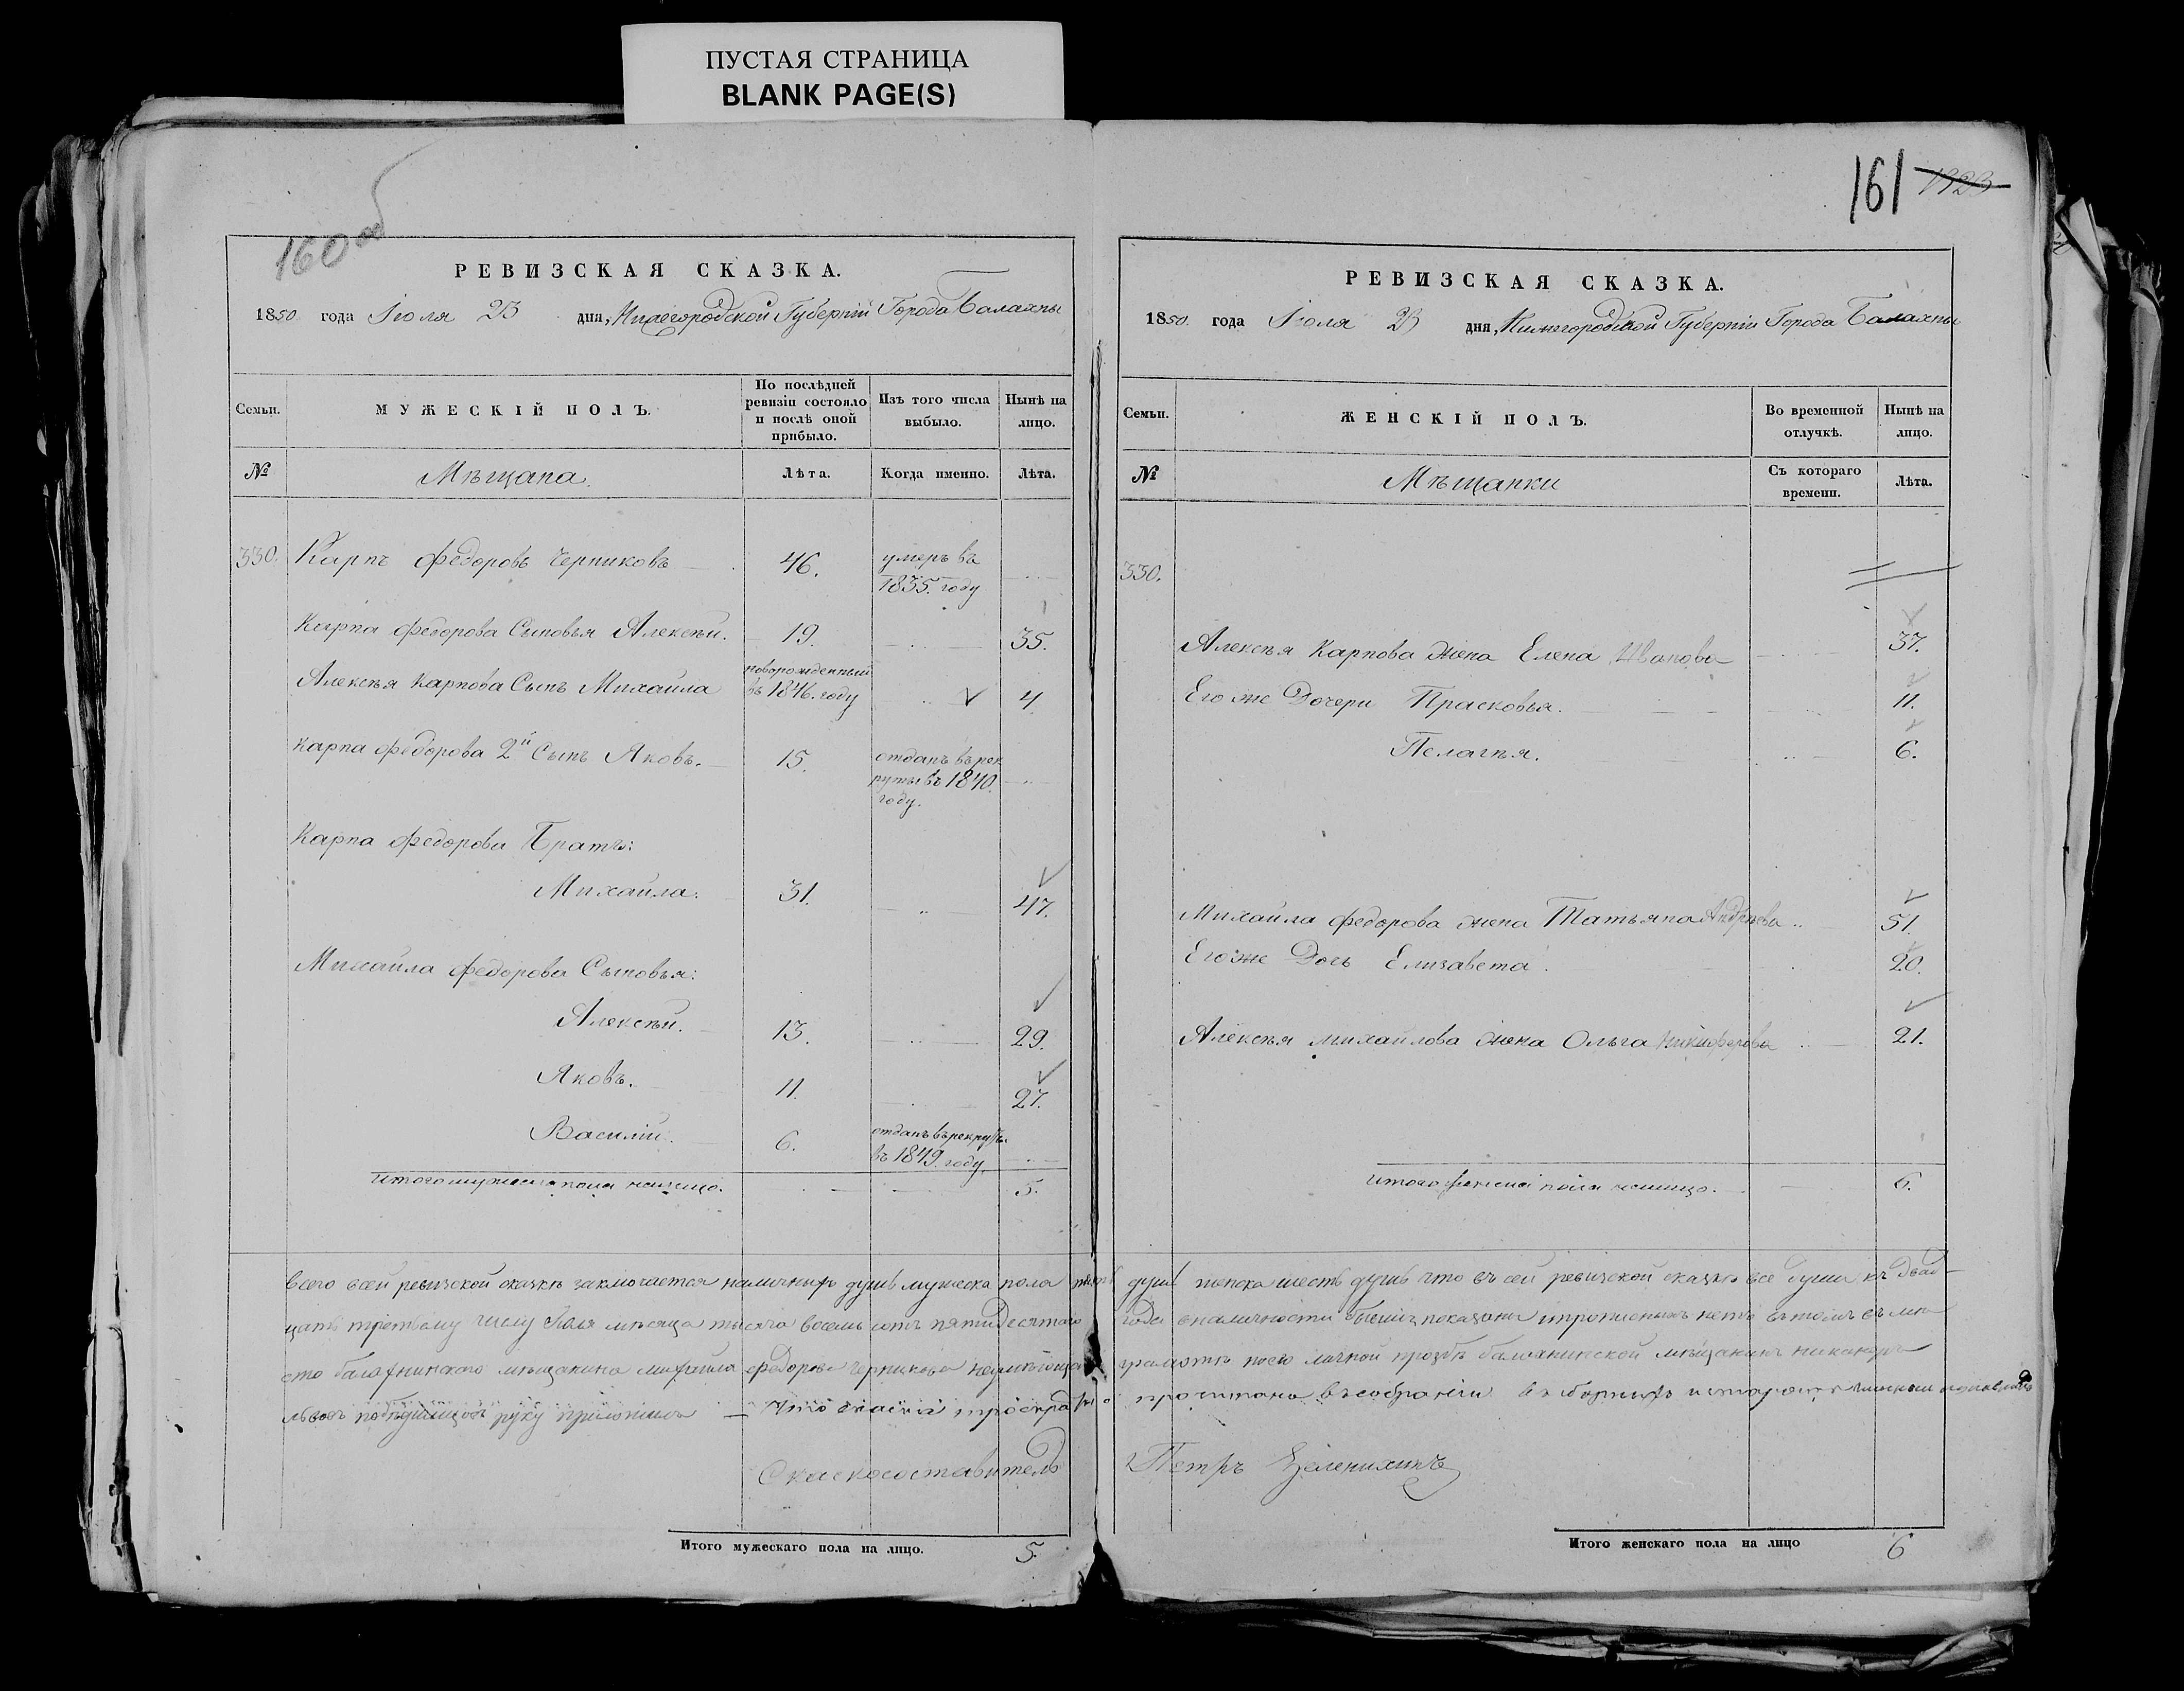 ПУСТАЯ СТРАНИЦА
BLANK PAGE(S)
160 об
РЕВИЗСКАЯ СКАЗКА.
1850 года Іюля 23 дня, Нижегородской Губерніи Города Балахны
Семьи.
МУЖЕСКІЙ ПОЛЪ.
По послѣдней ревизіи состояло и послѣ оной прибыло.
Изъ того числа выбыло.
Нынѣ на лицо.
№
Мѣщана.
Лѣта.
Когда именно.
Лѣта.
330. Карпъ Федоровъ Черниковъ 46. умеръ въ 1835. году
Карпа Федорова Сыновья Алексѣй. 19. 35.
Алексѣя Карпова Сынъ Михайла новорожденный въ 1846. году 4
Карпа Федорова 2й Сынъ Яковъ. 15. отданъ въ рекруты въ 1840. году.
Карпа Федорова Братъ:
Михайла. 31. 47.
Михайла Федорова Сыновья:
Алексѣй. 13. 29.
Яковъ. 11. 27.
Василій. 6. отданъ въ рекруты въ 1849. году
Итого мужеска пола на лицо. 5.
161 1923
РЕВИЗСКАЯ СКАЗКА.
1850. года Іюля 23 дня, Нижегородской Губерніи Города Балахны
Семьи.
ЖЕНСКІЙ ПОЛЪ.
Во временной отлучкѣ.
Нынѣ на лицо.
№
Мѣщанки
Съ котораго времени.
Лѣта.
330.
Алексѣя Карпова жена Елена Иванова 37.
Его же Дочери Прасковья. 11.
Пелагѣя. 6.
Михайла Федорова жена Татьяна Андреева 51.
Его же Дочь Елизавета. 20.
Алексѣя Михайлова жена Ольга Никифорова 21.
Итого женска пола на лицо. 6.
Всего въ сей ревизской сказкѣ заключается наличныхъ душъ мужеска пола пять душъ женска шесть душъ что въ сей ревизской сказкѣ все души къ двад-
цать третьему числу Іюля мѣсяца тысяча восемь сотъ пятидесятаго года въ наличности бывшія показаны и прописныхъ нетъ въ томъ въ мѣ
сто балахнинскаго мѣщанина михайла федорова черникова неумѣющаго грамотѣ по его личной прозбѣ балахнинской мѣщанинъ никаноръ
руку приложилъ
Сказкосоставитель Петръ Зеленихинъ
Итого мужескаго пола на лицо. 5.
Итого женскаго пола на лицо 6